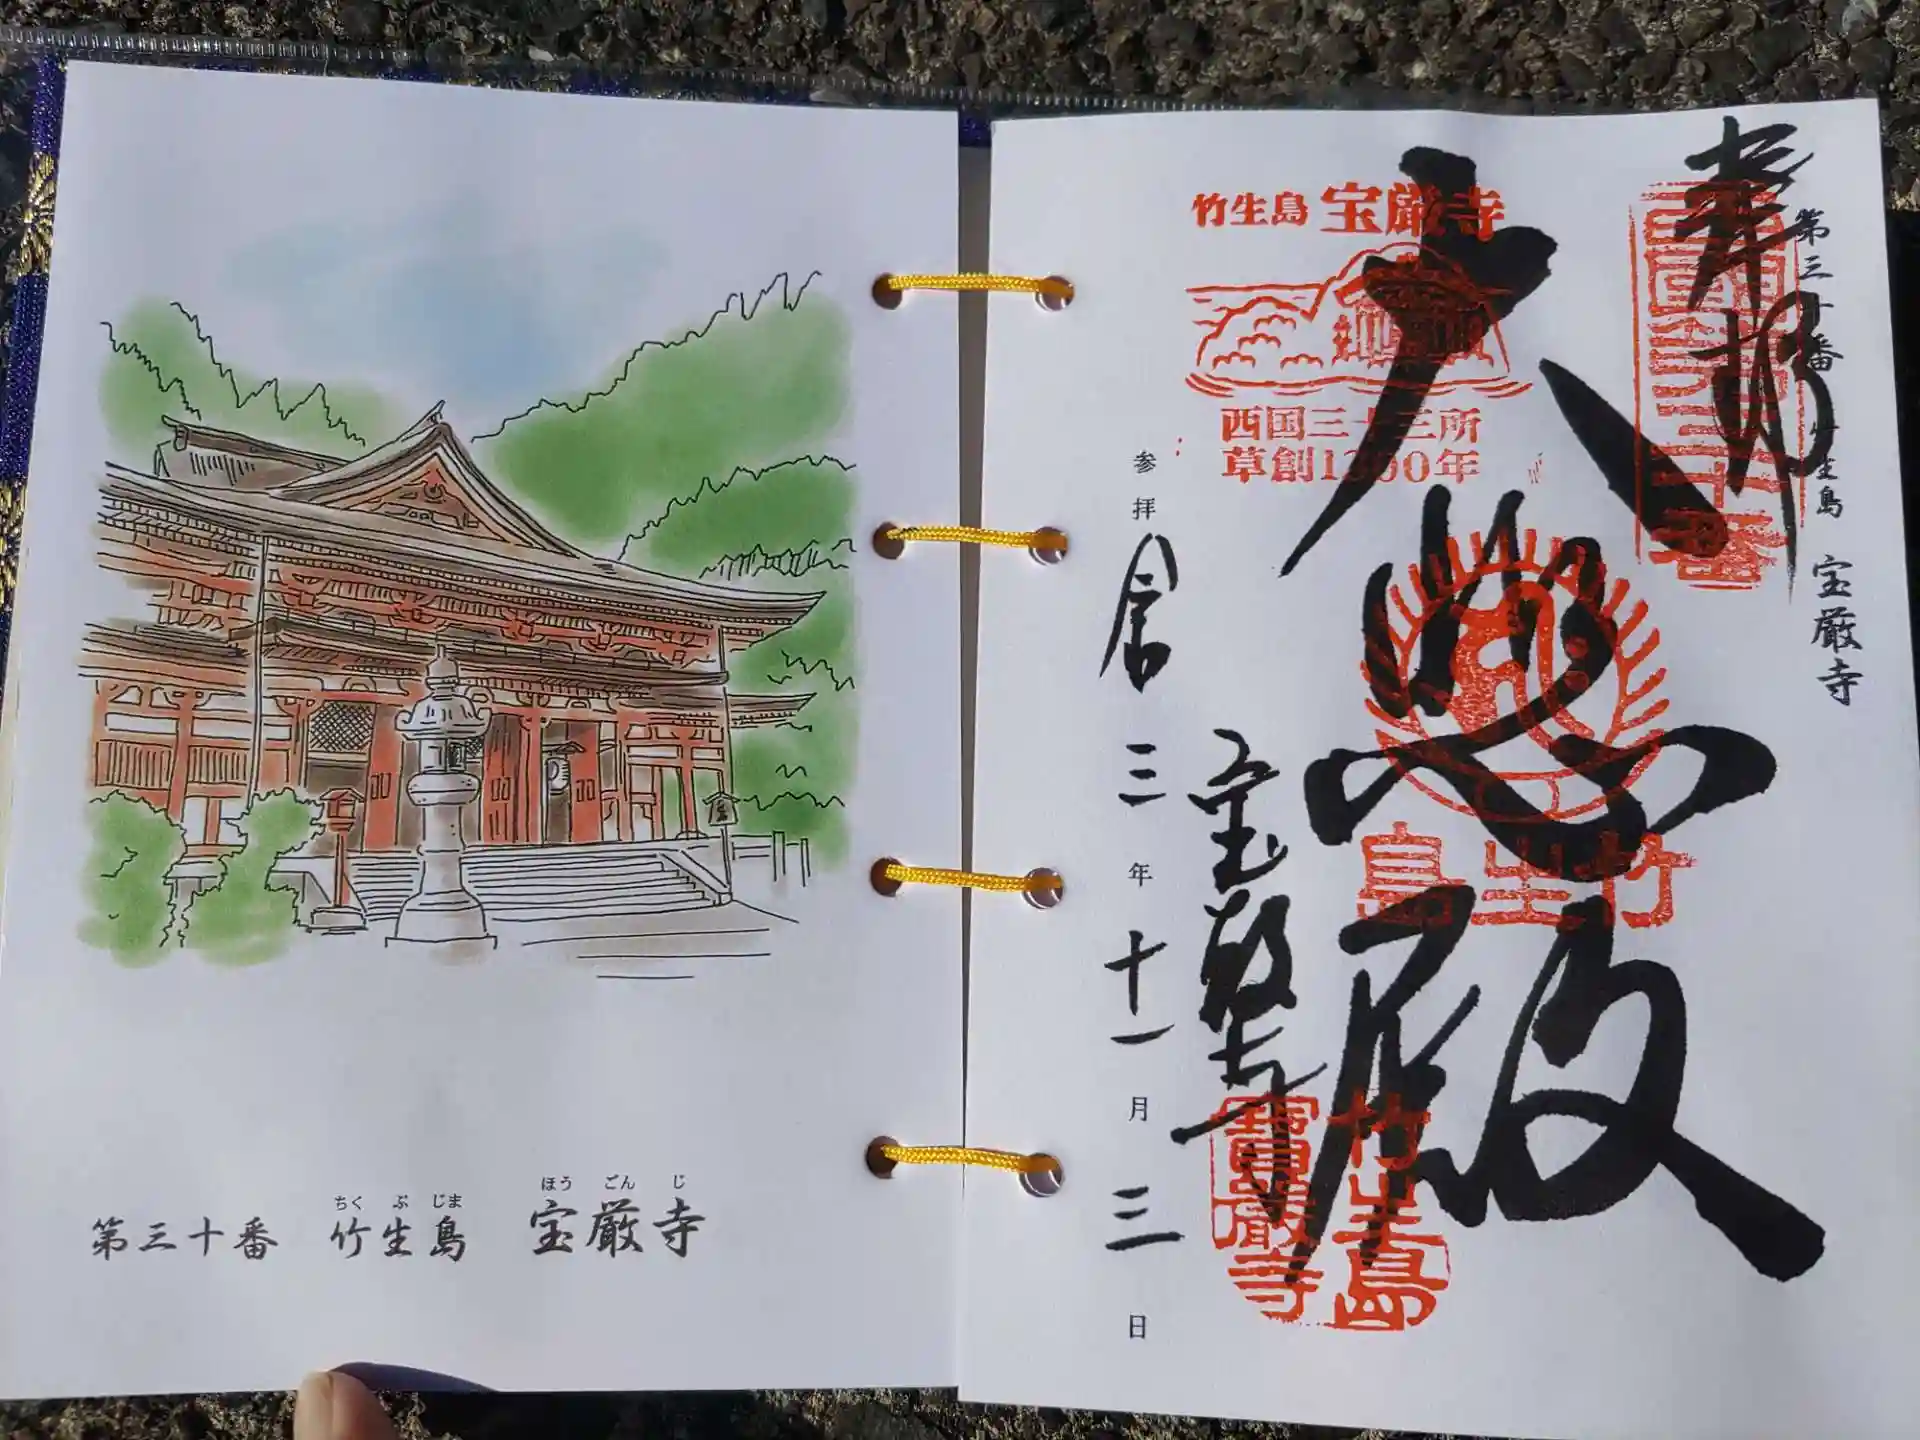 ちくぶじま
ほうごんじ
第三十番 竹生島 宝厳寺
奉拝
第三十番 竹生島 宝厳寺
西国三十三所三十番
竹生島 宝厳寺
西国三十三所
草創1300年
大悲殿
竹生島
宝厳寺
竹生島
寶嚴寺
参拝 令和三年十一月三日